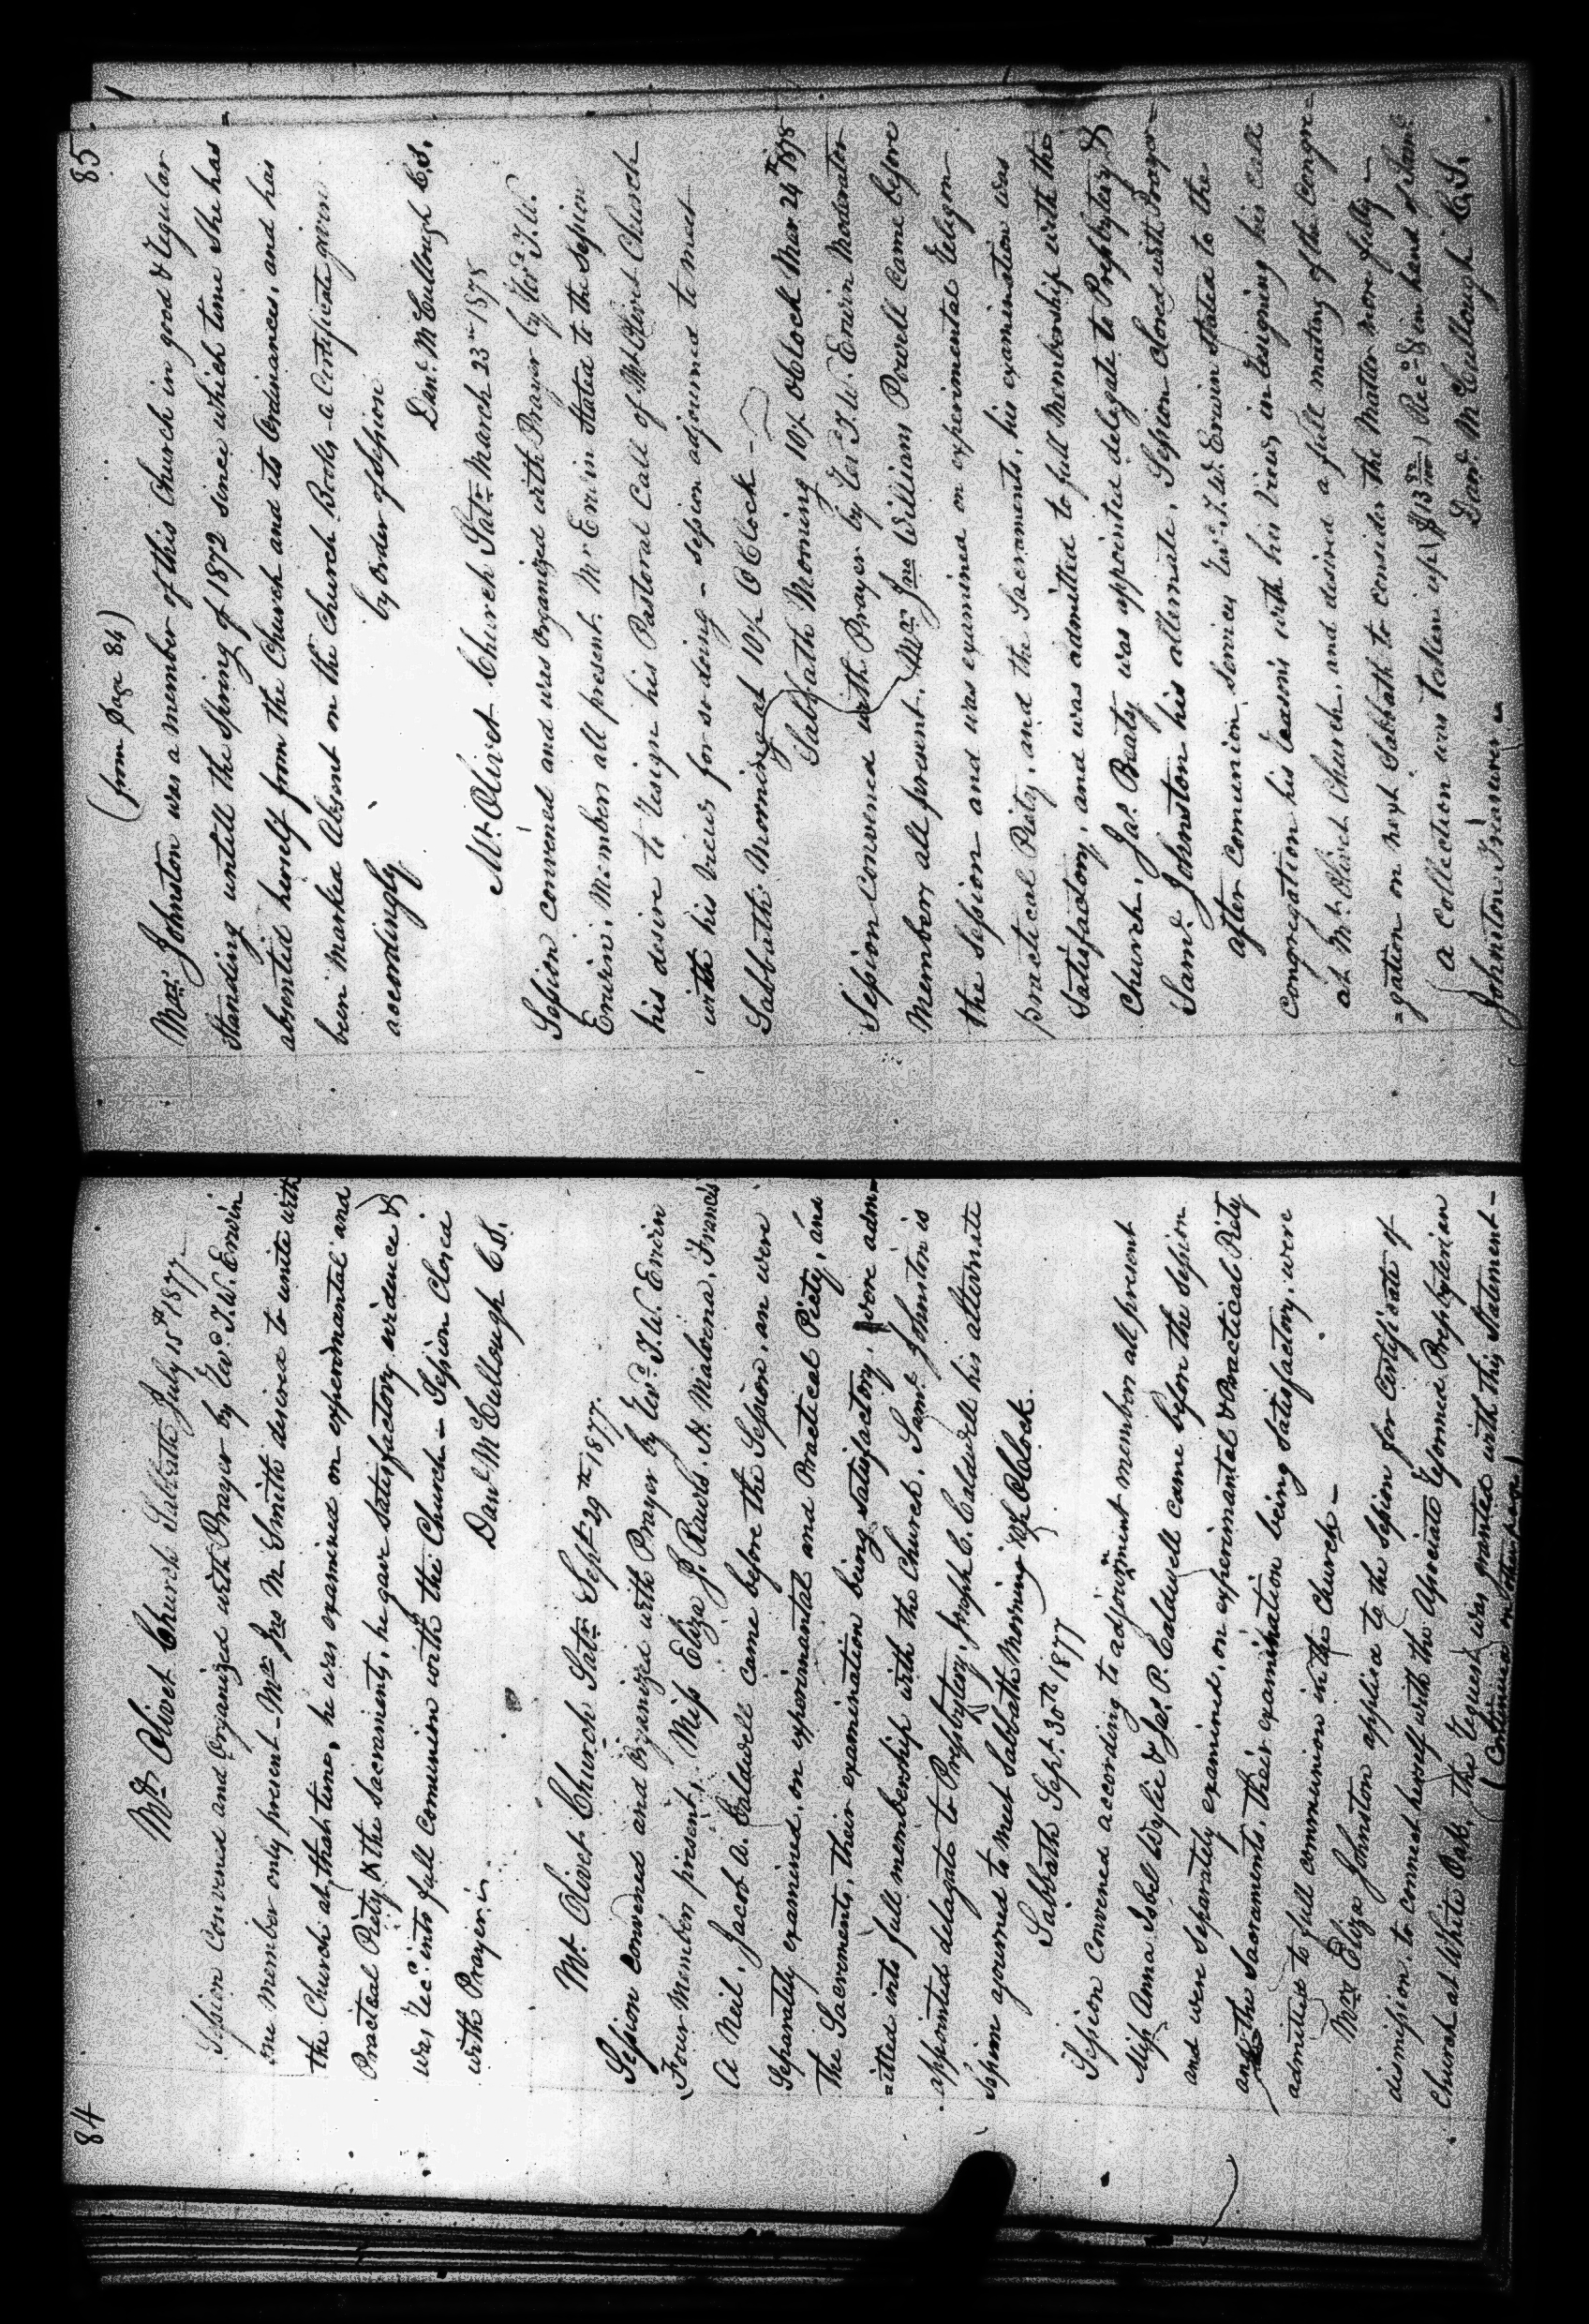 84
Mt. Olivet Church Sabbath July 15th 1877
Session Convened and Organized with Prayer by Revd. T. W. Erwin
one member only present - Mr. Jno M. Smith desired to unite with
the Church at that time, he was examined on experimantal and
Practical Piety & the Sacraments, he gave satisfactory evidence &
was Recd. into full communion with the Church - Session Closed
with Prayer,
Danl McCullough C.S.
Mt. Olivet Church Satr. Sept. 29th 1877.
Session Convened and Organized with Prayer by Revd. T. W. Erwin
Four Members present, Miss Eliza J. Rawls. N. Malvena, Francis
A Neil, Jacob A. Caldwell came before the Session, an were
Separately examined, on experimantal and Practical Piety, and
The Sacrements, their examination being satisfactory, were adm=
=itted into full membership with the Church, Saml. Johnston is
appointed delagate to Presbytery, Joseph C. Caldwell his alternate
Session ajourned to meet Sabbath Morning 10½ OClock.
Sabbath Sept. 30th 1877
Session Convened according to adjournment members all present
Miss Anna Isbel Wylie & Jas. P. Caldwell came before the Session
and were Separately examined, on experimantal & Practical Piety
and the Sacraments, their examination being Satisfactory, were
admitted to full communion in the Church -
Mrs Eliza Johnston applied to the Session for Certificate of
dismission, to connect herself with the Associate Reformed Presbyterian
Church at White Oak, the Request was granted with this Statement -
(Continued on other page)
85
(from Page 84)
Mrs. Johnston was a member of this Church in good & Regular
Standing untill the Spring of 1872 since which time She has
absented herself from the Church and its Ordinances, and has
been Marked Absent on the Church Books - a Certificate given
accordingly
by order of Session
Danl. McCullough C.S.
Mt. Olivet Church Satr. March 23rd 1878
Session convened and was Organized with Prayer by Revd. T. W.
Erwin, Members all present. Mr Erwin Stated to the Session
his desire to Resign his Pastoral Call of Mt. Olivet Church
with his views for so doing - session adjourned to meet
Sabbath Morning at 10½ OClock -
Sabbath Morning 10½ OClock Mar 24th 1878
Session Convened with Prayer by Revd. T. W. Erwin Moderator
Members all present. Mrs Jane Williams Powell Came before
the Session and was examined on experimental Religion
practical Piety, and the Sacraments, his examination was
Satisfactory, and was admitted to full Membership with the
Church, Jas. Beaty was appointed delegate to Presbytery &
Saml. Johnston his alternate. Session closed with Prayer -
after Comunion Services Revd. T. W. Erwin stated to the
Congregation his Reasons with his views in Resigning his Call
at Mt. Olivet Church, and desired a full meeting of the Congre=
=gation on next Sabbath to consider the Matter more fully -
a Collection was taken up Recd. & in hand of Saml.
Johnston Treasurer
Danl. McCullough C.S.